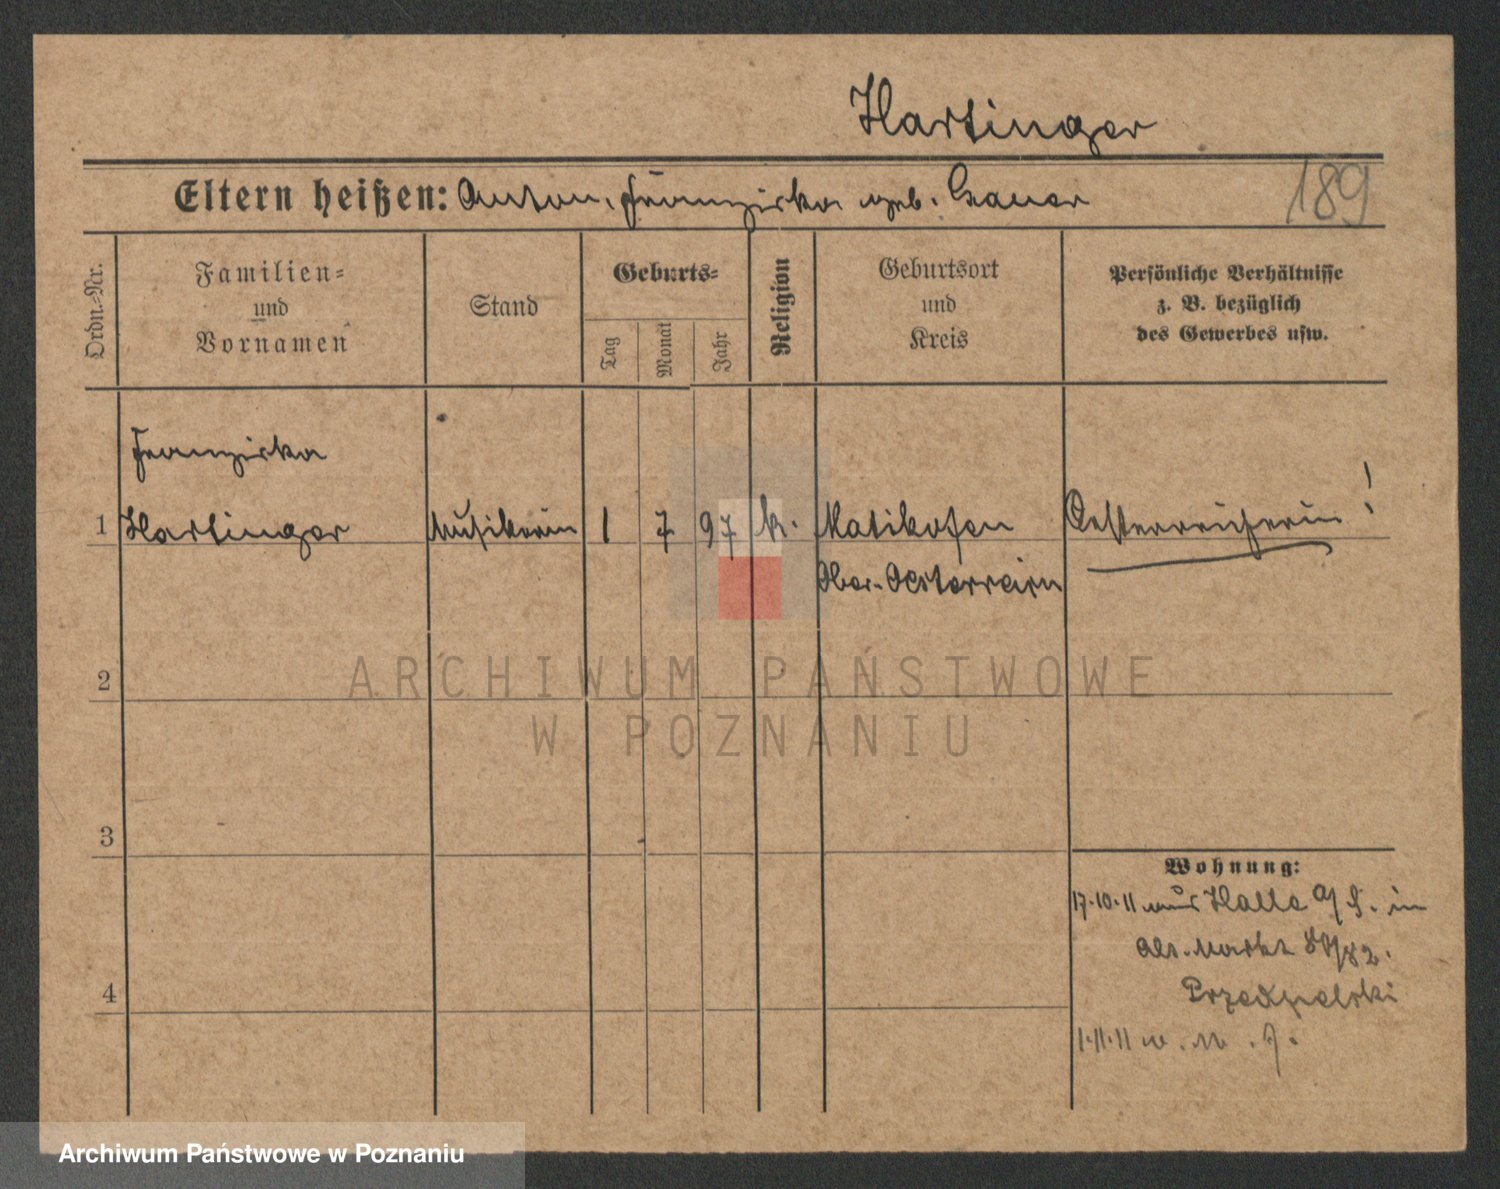 Hartinger
Eltern heißen: Anton, Franziska geb. Gauer
189
Ordn.-Nr.
Familien-
und
Vornamen
Stand
Geburts-
Tag
Monat
Jahr
Religion
Geburtsort
und
Kreis
Persönliche Verhältnisse
z. B. bezüglich
des Gewerbes usw.
Franziska
1 Hartinger Musikerin 1 7 97 k. Matikofen Oesterreicherin!
Ober-Oesterreich
ARCHIWUM PAŃSTWOWE
2
W POZNANIU
3
Wohnung:
17.10.11 aus Halle a/S. in
Alt. Markt 82.
4
1.11.11
Archiwum Państwowe w Poznaniu